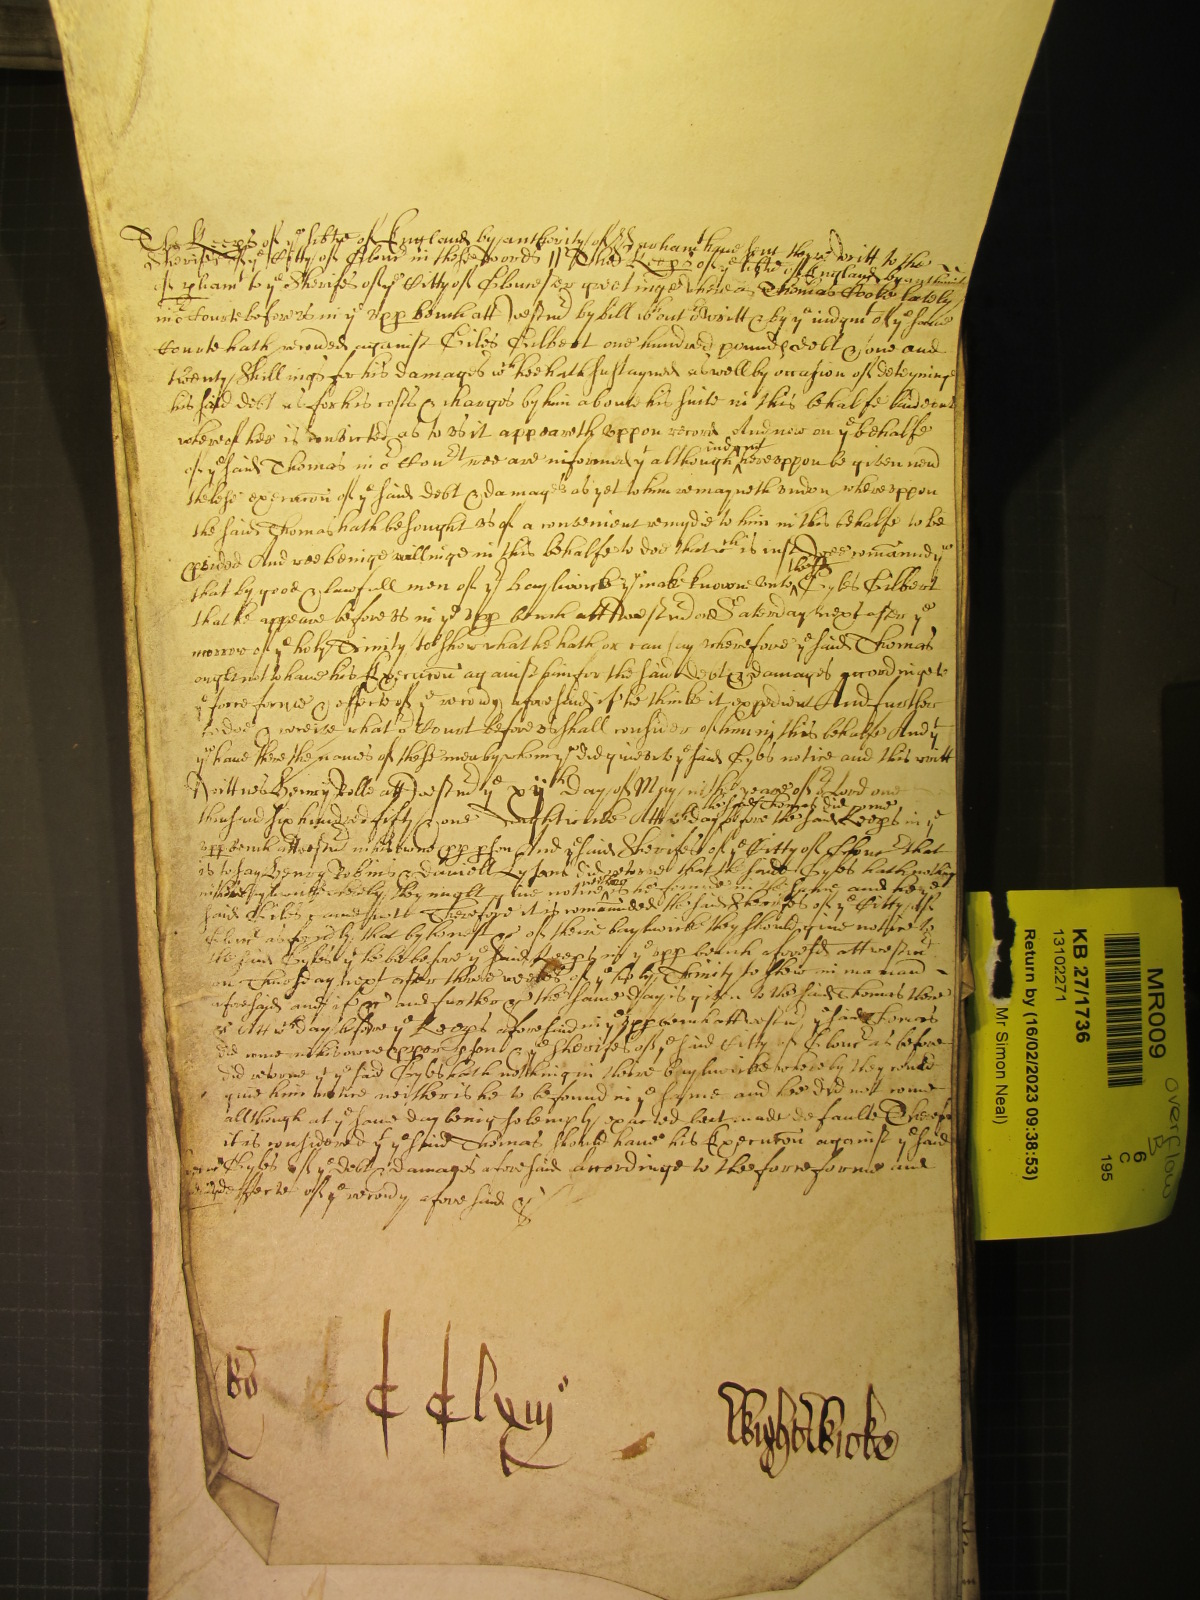 The Keeps of ye libtye of England by authority of Parliamt have sent their writt to the
Sherifes of ye Citty of Glouc in these words // The Keeps of ye libtie of England by authority
of pliamt to ye Sherifes of ye Citty of Gloucester greetinge Whereas Thomas Cooke lately
in or Courte before us in ye upp bench att Westmr by bill wthout or writt & by ye iudgmt of ye same
Courte hath recoued against Giles Gilbert one hundred pounds debt & one and
twenty shillings for his damages wch hee hath sustayned as well by occasion of deteyninge
his said debt as for his costs & charges by him about his suite in this behalfe
whereof hee is convicted as to us it appeareth uppon record And now on ye behalfe
of ye said Thomas in or Court wee are informed yt although iudgmt hereuppon be given nevd
thelesse execucon of ye said debt & damages as yet to him remayneth undon whereuppon
the said Thomas hath besought us of a convenient remydie to him in this behalfe to be
pvided And wee beinge willinge in this behalfe to doe that wch is iust doe comaund you
that by good & lawfull men of yr Bayliwicke yu make knowne unto the said Gyles Gilbert
that he appeare before us in ye upp bench att Westmr on Saterday next after ye
morrow of ye holy Trinity to shew what he hath or can say wherefore ye said Thomas
ought not to have his Execucon against him for the said debt & damages accordinge to
ye force forme & effecte of ye recouy aforesaid if he thinke it expedient And further
to doe & receive what or Court before us shall consider of him in this behalfe And yt
yu have there the names of those men by whom yu did give to ye said Gyles notice and this writt
Wittnes Henry Rolle att Westmr ye xijth day of May in the yeare of or Lord one
thousand six hundred fifty & one Att wch day before the said Keeps in ye the said Thomas did come
upp bench att Westmr in his owne pp pson And ye said Sherifes of ye Citty of Glouc that
is to say Henry Robins & Daniell Lysons did retorne that the said Gyles hath nothing
in their bayliwicke whereby they might give notice neither is he founde in the same and hee ye
said Giles came not Therefore it is comaunded the said Sherifes of ye Citty of
Glouc aforesd that by honest &c of there bayliwicke they should give notice to
the said Gyles yt he be before ye said Keeps in ye upp bench aforesd att Westmr
on Thursday next after three weekes of ye holy Trinity to shew in manner
aforesaid and if &c and further &c the same day is given to the said Thomas there
&c Att wch day before ye Keeps aforesaid in ye upp bench att Westmr ye said Thomas
did come in his owne pper pson & ye Sherifes of ye said Citty of Glouc as before
did retorne yt ye said Gyles hath nothing in there bayliwicke whereby they could
give him notice neither is he to be found in ye same and hee did not come
allthough at ye same day being solemply exacted but made defaulte Therefore
it is considered yt ye said Thomas should have his Execucon against ye said
Gyles of ye debt & damages aforesaid accordinge to the force forme and
effecte of ye recouy aforesaid &c
Ro CClxiijo
Wightwicke
MR009
Overflow
B
6
C
195
KB 27/1736
13102271
Return by (16/02/2023 09:38:53)
Mr Simon Neal)